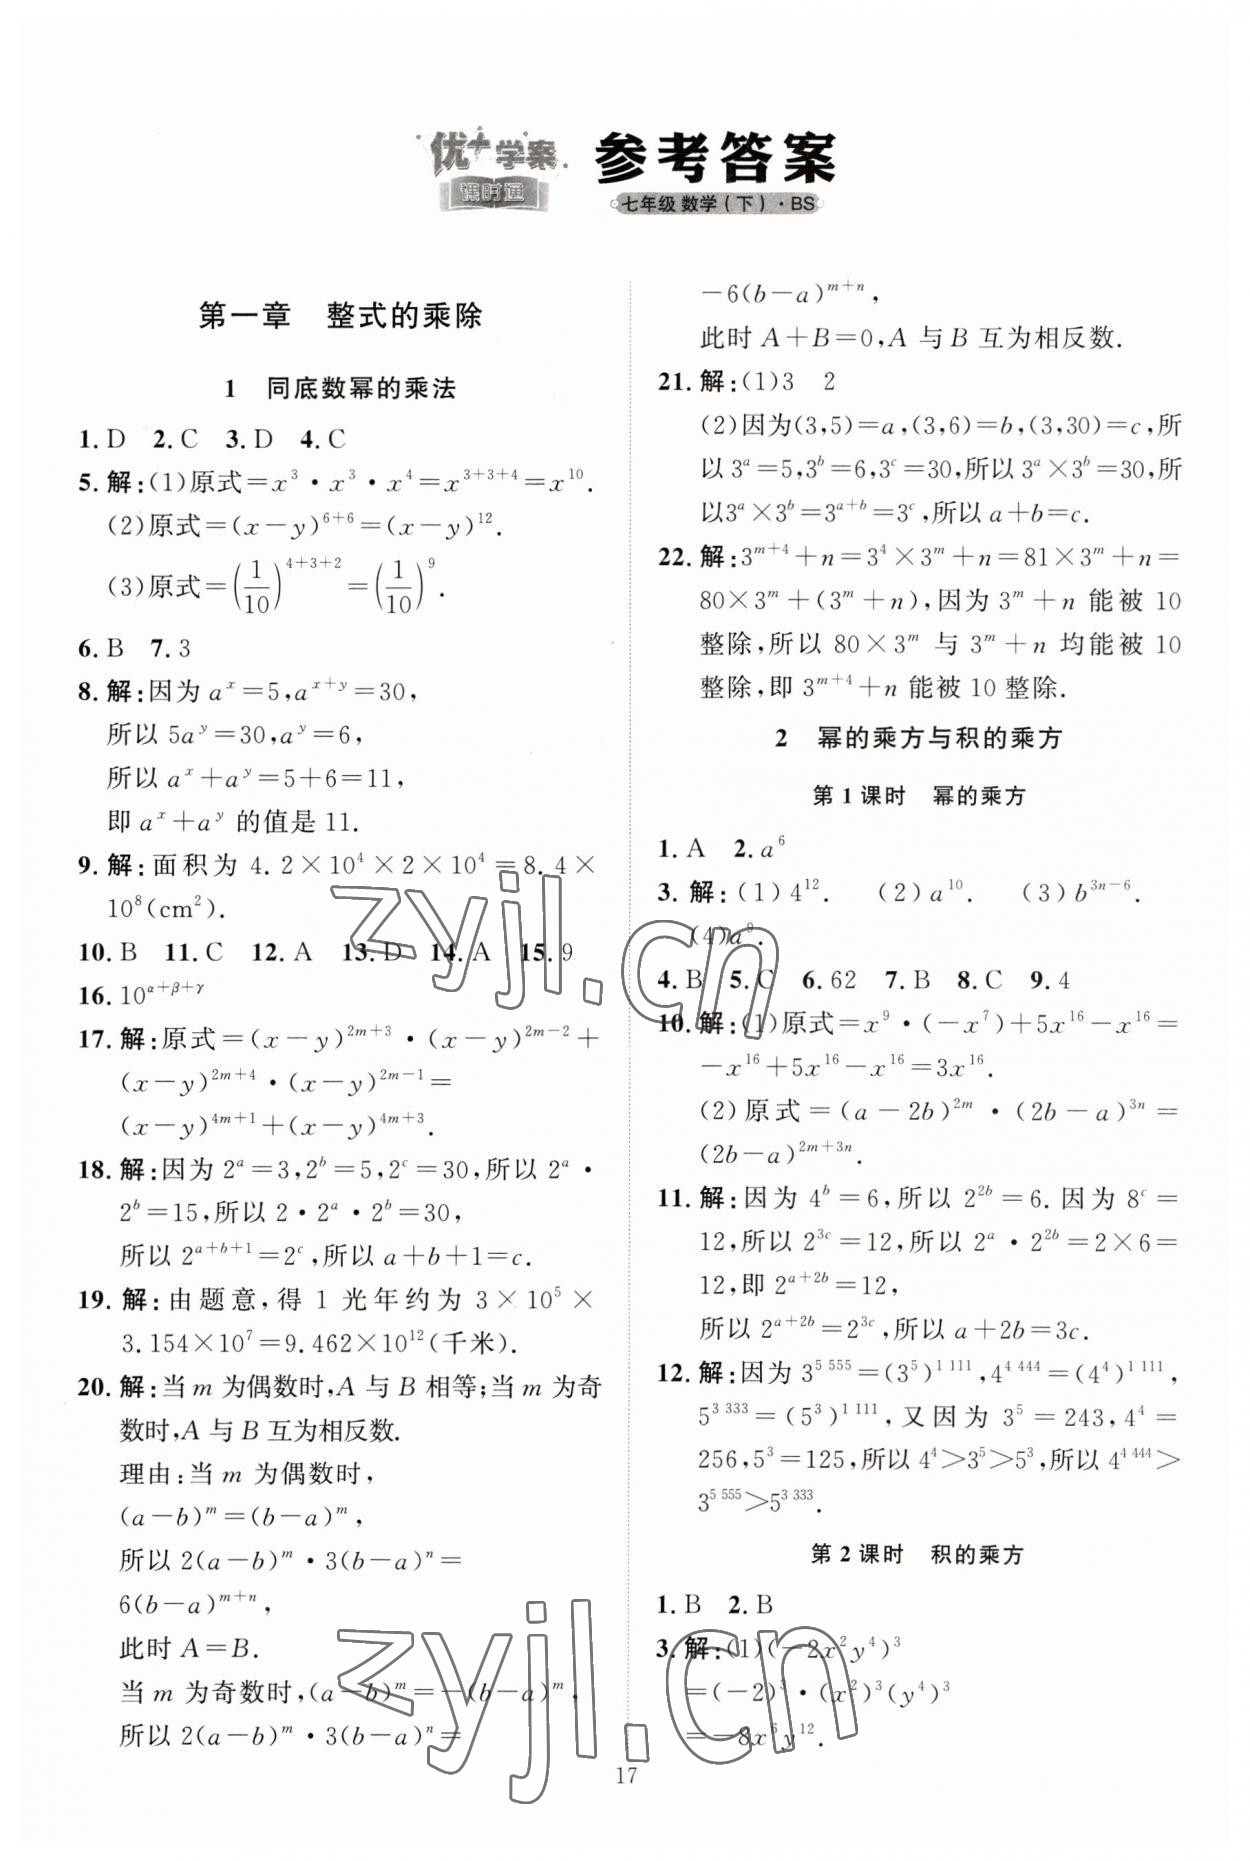 优+学案
课时通
参考答案
七年级 数学(下)·BS
第一章 整式的乘除
1 同底数幂的乘法
1. D 2. C 3. D 4. C
5. 解:(1)原式=x³·x³·x⁴=x³⁺³⁺⁴=x¹⁰.
(2)原式=(x-y)⁶⁺⁶=(x-y)¹².
(3)原式=(1/10)⁴⁺³⁺²=(1/10)⁹.
6. B 7. 3
8. 解:因为 a^x=5,a^{x+y}=30,
所以 5a^y=30,a^y=6,
所以 a^x+a^y=5+6=11,
即 a^x+a^y 的值是 11.
9. 解:面积为 4.2×10⁴×2×10⁴=8.4×
10⁸(cm²).
10. B 11. C 12. A 13. D 14. A 15. 9
16. 10^{α+β+γ}
17. 解:原式=(x-y)^{2m+3}·(x-y)^{2m-2}+
(x-y)^{2m+4}·(x-y)^{2m-1}=
(x-y)^{4m+1}+(x-y)^{4m+3}.
18. 解:因为 2^a=3,2^b=5,2^c=30,所以 2^a·
2^b=15,所以 2·2^a·2^b=30,
所以 2^{a+b+1}=2^c,所以 a+b+1=c.
19. 解:由题意,得 1 光年约为 3×10⁵×
3.154×10⁷=9.462×10¹²(千米).
20. 解:当 m 为偶数时,A 与 B 相等;当 m 为奇
数时,A 与 B 互为相反数.
理由:当 m 为偶数时,
(a-b)^m=(b-a)^m,
所以 2(a-b)^m·3(b-a)^n=
6(b-a)^{m+n},
此时 A=B.
当 m 为奇数时,(a-b)^m=-(b-a)^m,
所以 2(a-b)^m·3(b-a)^n=
-6(b-a)^{m+n},
此时 A+B=0,A 与 B 互为相反数.
21. 解:(1)3 2
(2)因为(3,5)=a,(3,6)=b,(3,30)=c,所
以 3^a=5,3^b=6,3^c=30,所以 3^a×3^b=30,所
以3^a×3^b=3^{a+b}=3^c,所以 a+b=c.
22. 解:3^{m+4}+n=3⁴×3^m+n=81×3^m+n=
80×3^m+(3^m+n),因为 3^m+n 能被 10
整除,所以 80×3^m 与 3^m+n 均能被 10
整除,即 3^{m+4}+n 能被 10 整除.
2 幂的乘方与积的乘方
第 1 课时 幂的乘方
1. A 2. a⁶
3. 解:(1)4¹². (2)a¹⁰. (3)b^{3n-6}.
(4)a⁹.
4. B 5. C 6. 62 7. B 8. C 9. 4
10. 解:(1)原式=x⁹·(-x⁷)+5x¹⁶-x¹⁶=
-x¹⁶+5x¹⁶-x¹⁶=3x¹⁶.
(2)原式=(a-2b)^{2m}·(2b-a)^{3n}=
(2b-a)^{2m+3n}.
11. 解:因为 4^b=6,所以 2^{2b}=6.因为 8^c=
12,所以 2^{3c}=12,所以 2^a·2^{2b}=2×6=
12,即 2^{a+2b}=12,
所以 2^{a+2b}=2^{3c},所以 a+2b=3c.
12. 解:因为 3^{5 555}=(3⁵)^{1 111},4^{4 444}=(4⁴)^{1 111},
5^{3 333}=(5³)^{1 111},又因为 3⁵=243,4⁴=
256,5³=125,所以 4⁴>3⁵>5³,所以 4^{4 444}>
3^{5 555}>5^{3 333}.
第 2 课时 积的乘方
1. B 2. B
3. 解:(1)(-2x²y⁴)³
=(-2)³·(x²)³(y⁴)³
=-8x⁶y¹².
17
zyjl.cn
zyjl.cn